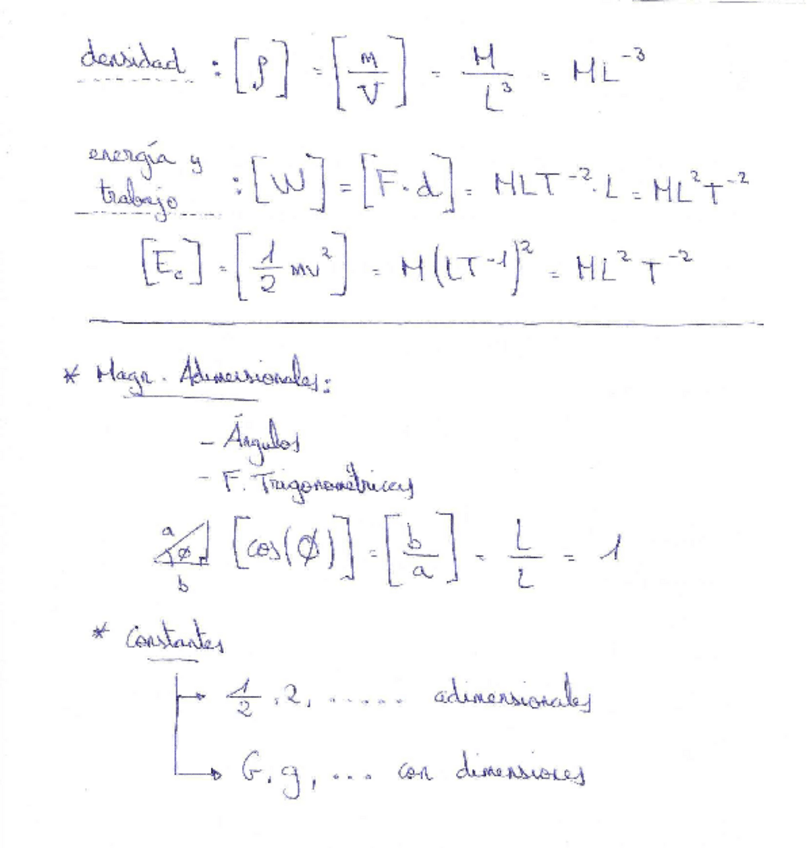 densidad : [ρ] = [m/V] = M/L³ = ML⁻³
energía y
trabajo : [W] = [F·d] = MLT⁻²·L = ML²T⁻²
[Ec] = [1/2 mv²] = M(LT-1)² = ML²T⁻²
* Magn. Adimensionales:
- Ángulos
- F. Trigonométricas
a ϕ b [cos(ϕ)] = [b/a] = L/L = 1
* Constantes
→ 1/2, 2, ...... adimensionales
→ G, g, ... con dimensiones